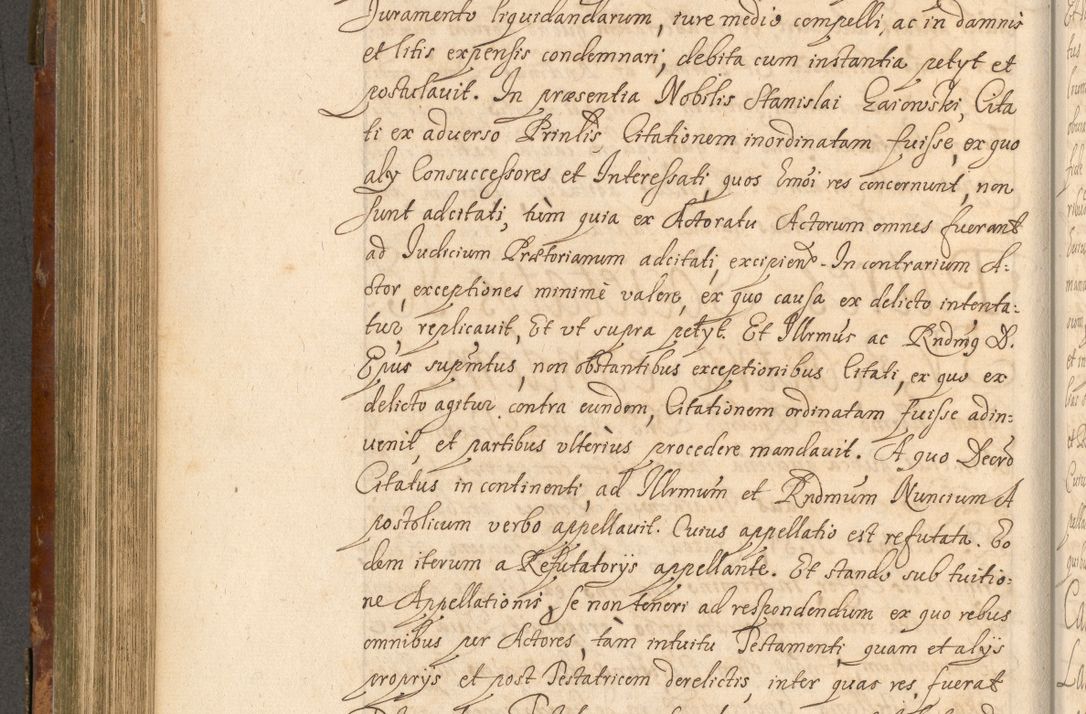 Juramento liquidandarum, iure medio compelli, ac in damnis
et litis expensis condemnari, debita cum instantia petyt et
postulauit. In præsentia Nobilis Stanislai Gaiowski, Cita
ti ex aduerso Prinlis, Citationem inordinatam fuisse, ex quo
aly Consuccessores et Interessati, quos eiusmoi res concernunt, non
sunt adcitati, tùm quia ex Actoratu Actorum omnes fuerant
ad Iudicium Prætorianum adcitati, excipien. In contrarium A:
ctor, exceptiones minimè valere, ex quo causa ex delicto intenta:
tur, replicauit, Et vt supra petyt. Et Illrmus ac Rndmg D.
Epus supmtus, non obstantibus exceptionibus Citati, ex quo ex
delicto agitur contra eundem, Citationem ordinatam fuisse adin:
uenit, et partibus vlterius procedere mandauit. A quo Decro
Citatus in continenti, ad Illrmum et Rndmum Nuncium A
postolicum verbo appellauit. Cuius appellatio est refutata. Eo
dem iterum a Refutatorys appellante. Et stando sub tuitio:
ne Appellationis, se non teneri ad respondendum ex quo rebus
omnibus per Actores, tàm intuitu Testamenti, quam et alÿs
proprÿs et post Testatricem derelictis, inter quas res fuerat